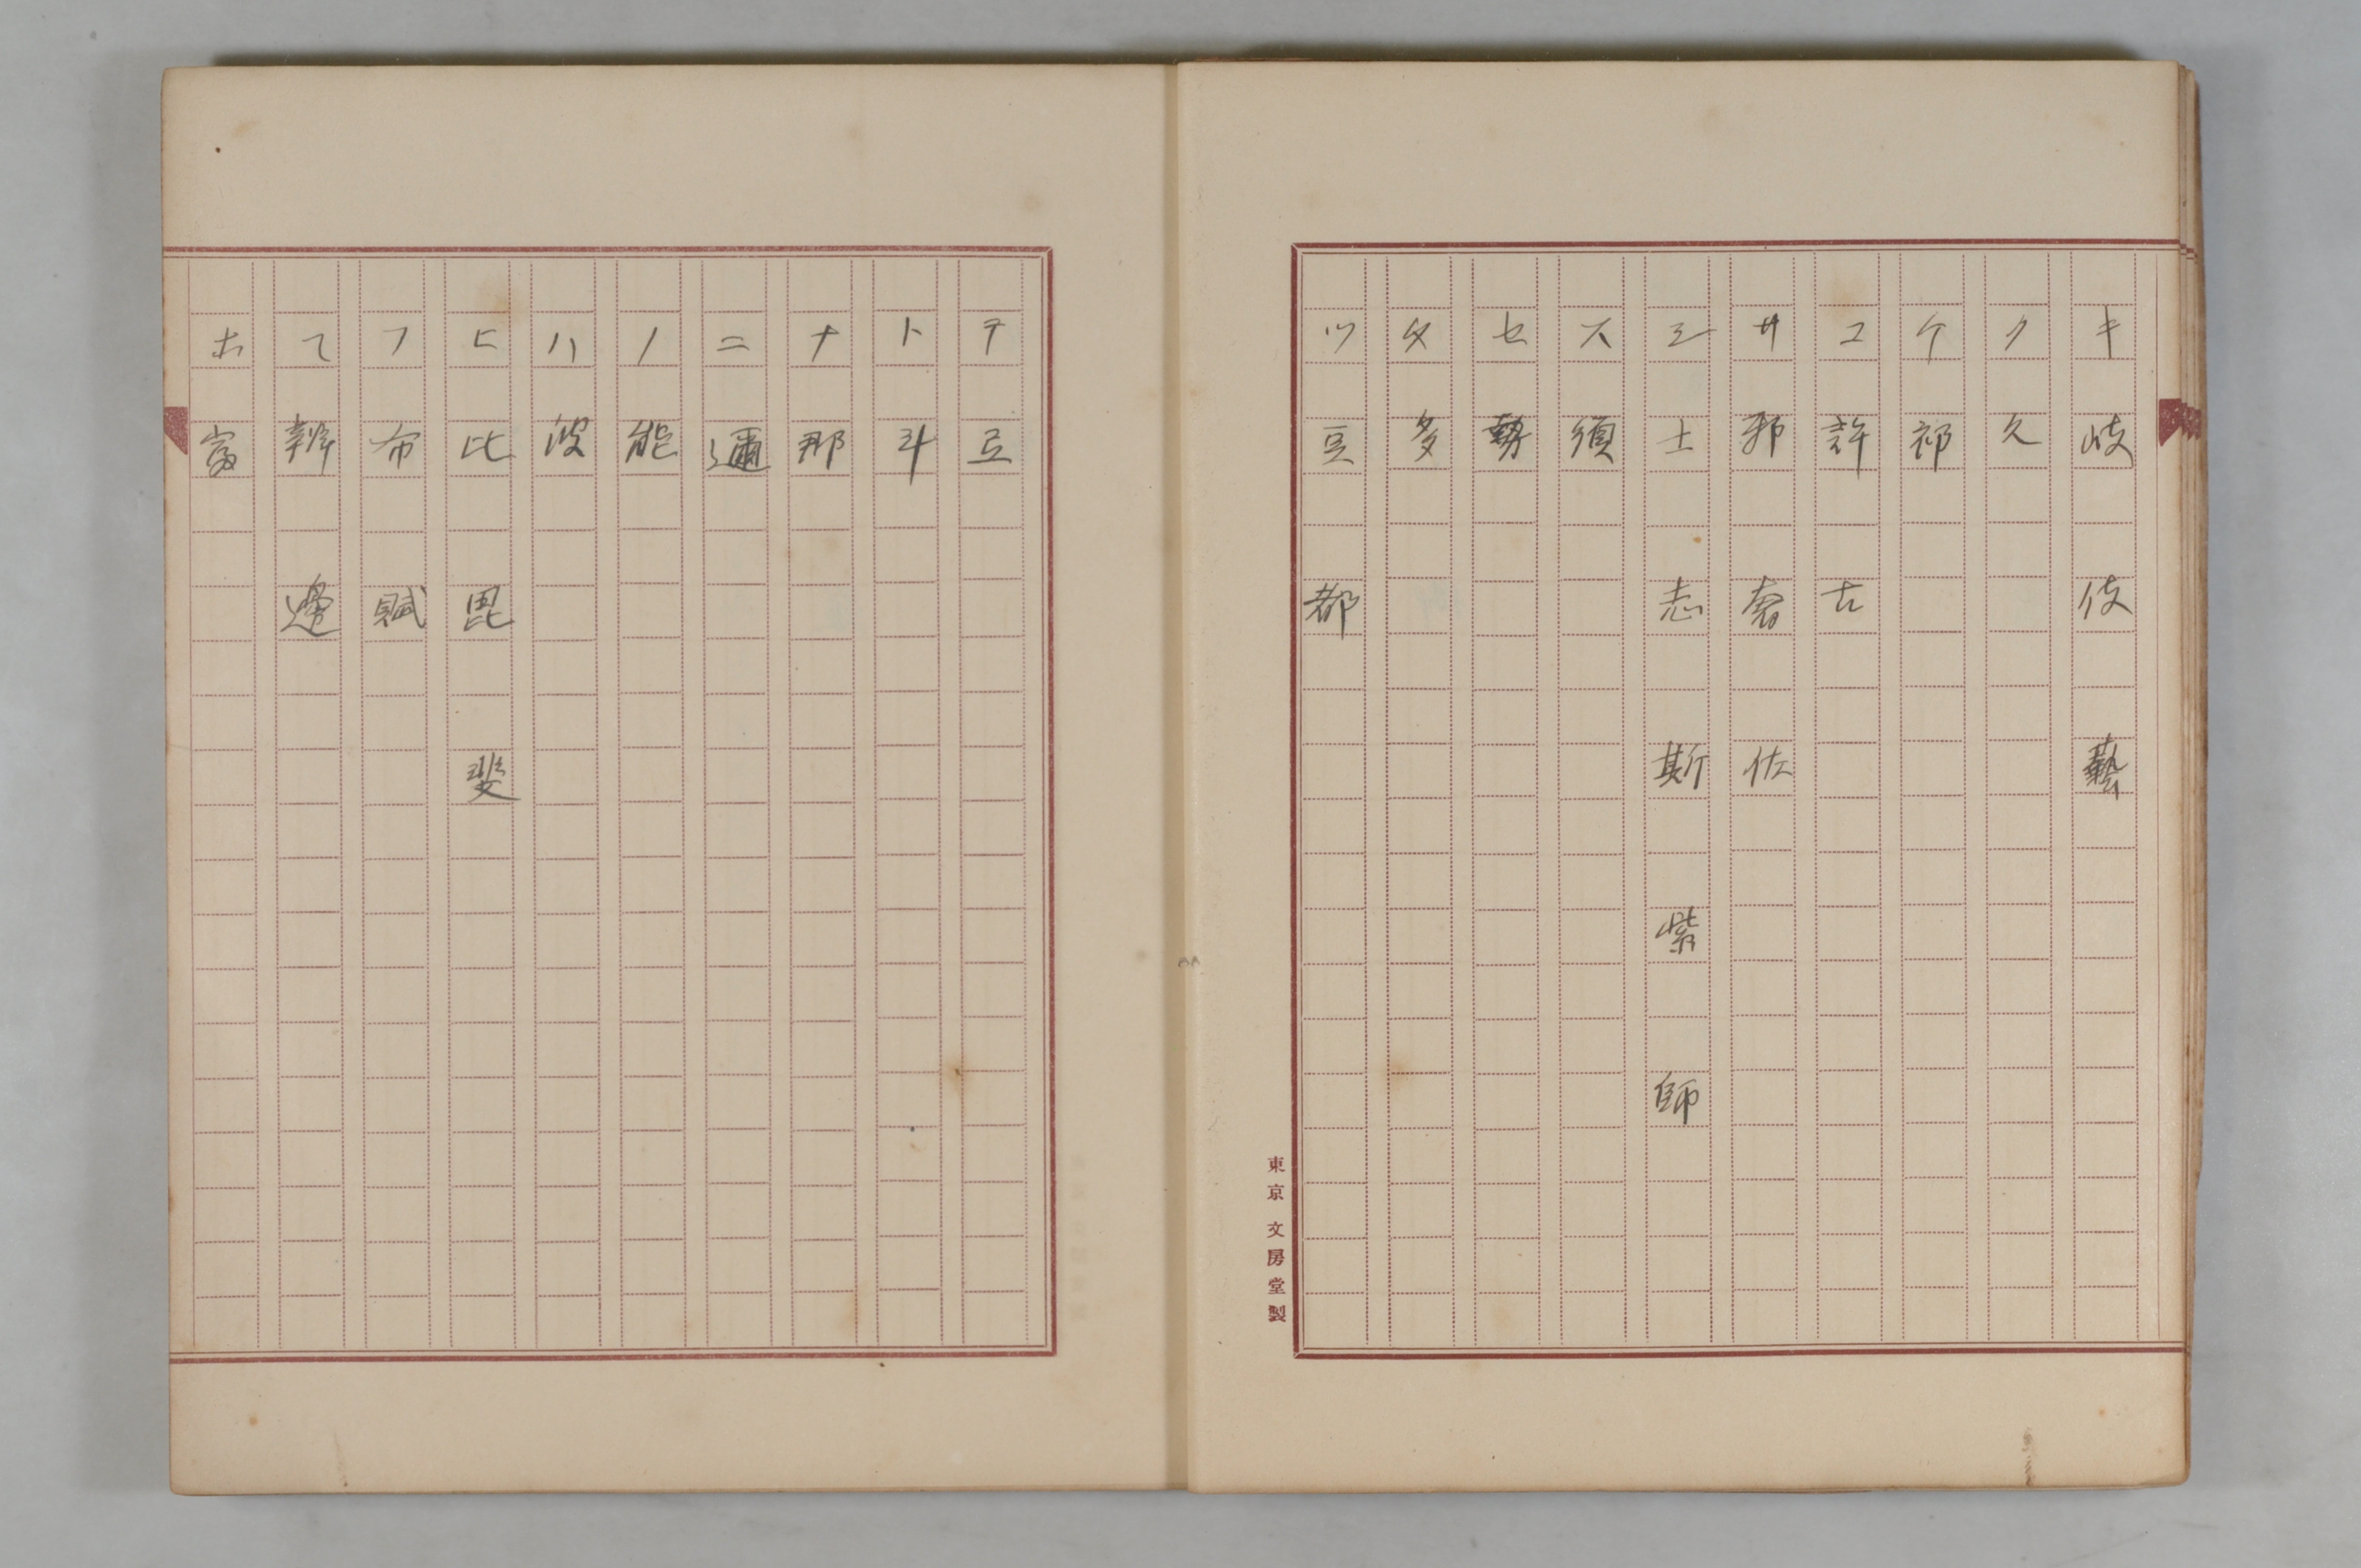 キ 岐 伎 藝
ク 久
ケ 祁
コ 許 古
サ 邪 奢 佐
シ 士 志 斯 紫 師
ス 須
セ 勢
タ 多
ツ 豆 都
東京 文房堂製
テ 豆
ト 斗
ナ 那
ニ 邇
ノ 能
ハ 波
ヒ 比 毘 斐
フ 布 賦
へ 辨 邊
ホ 富